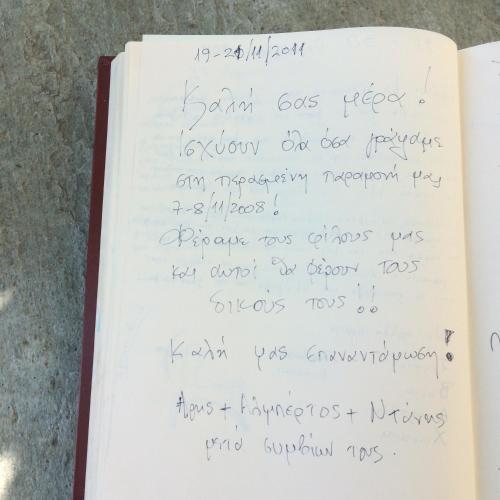 19-21/11/2011
Καλή σας μέρα!
Ισχύουν όλα όσα γράψαμε
στη περασμένη παραμονή μας
7-8/11/2008!
Φέραμε τους φίλους μας
και αυτοί θα φέρουν τους
δικούς τους!!
Καλή μας επαναντάμωση!
Άρης + Αλμπέρτος + Ντάνης
μετά συμβίων τους.